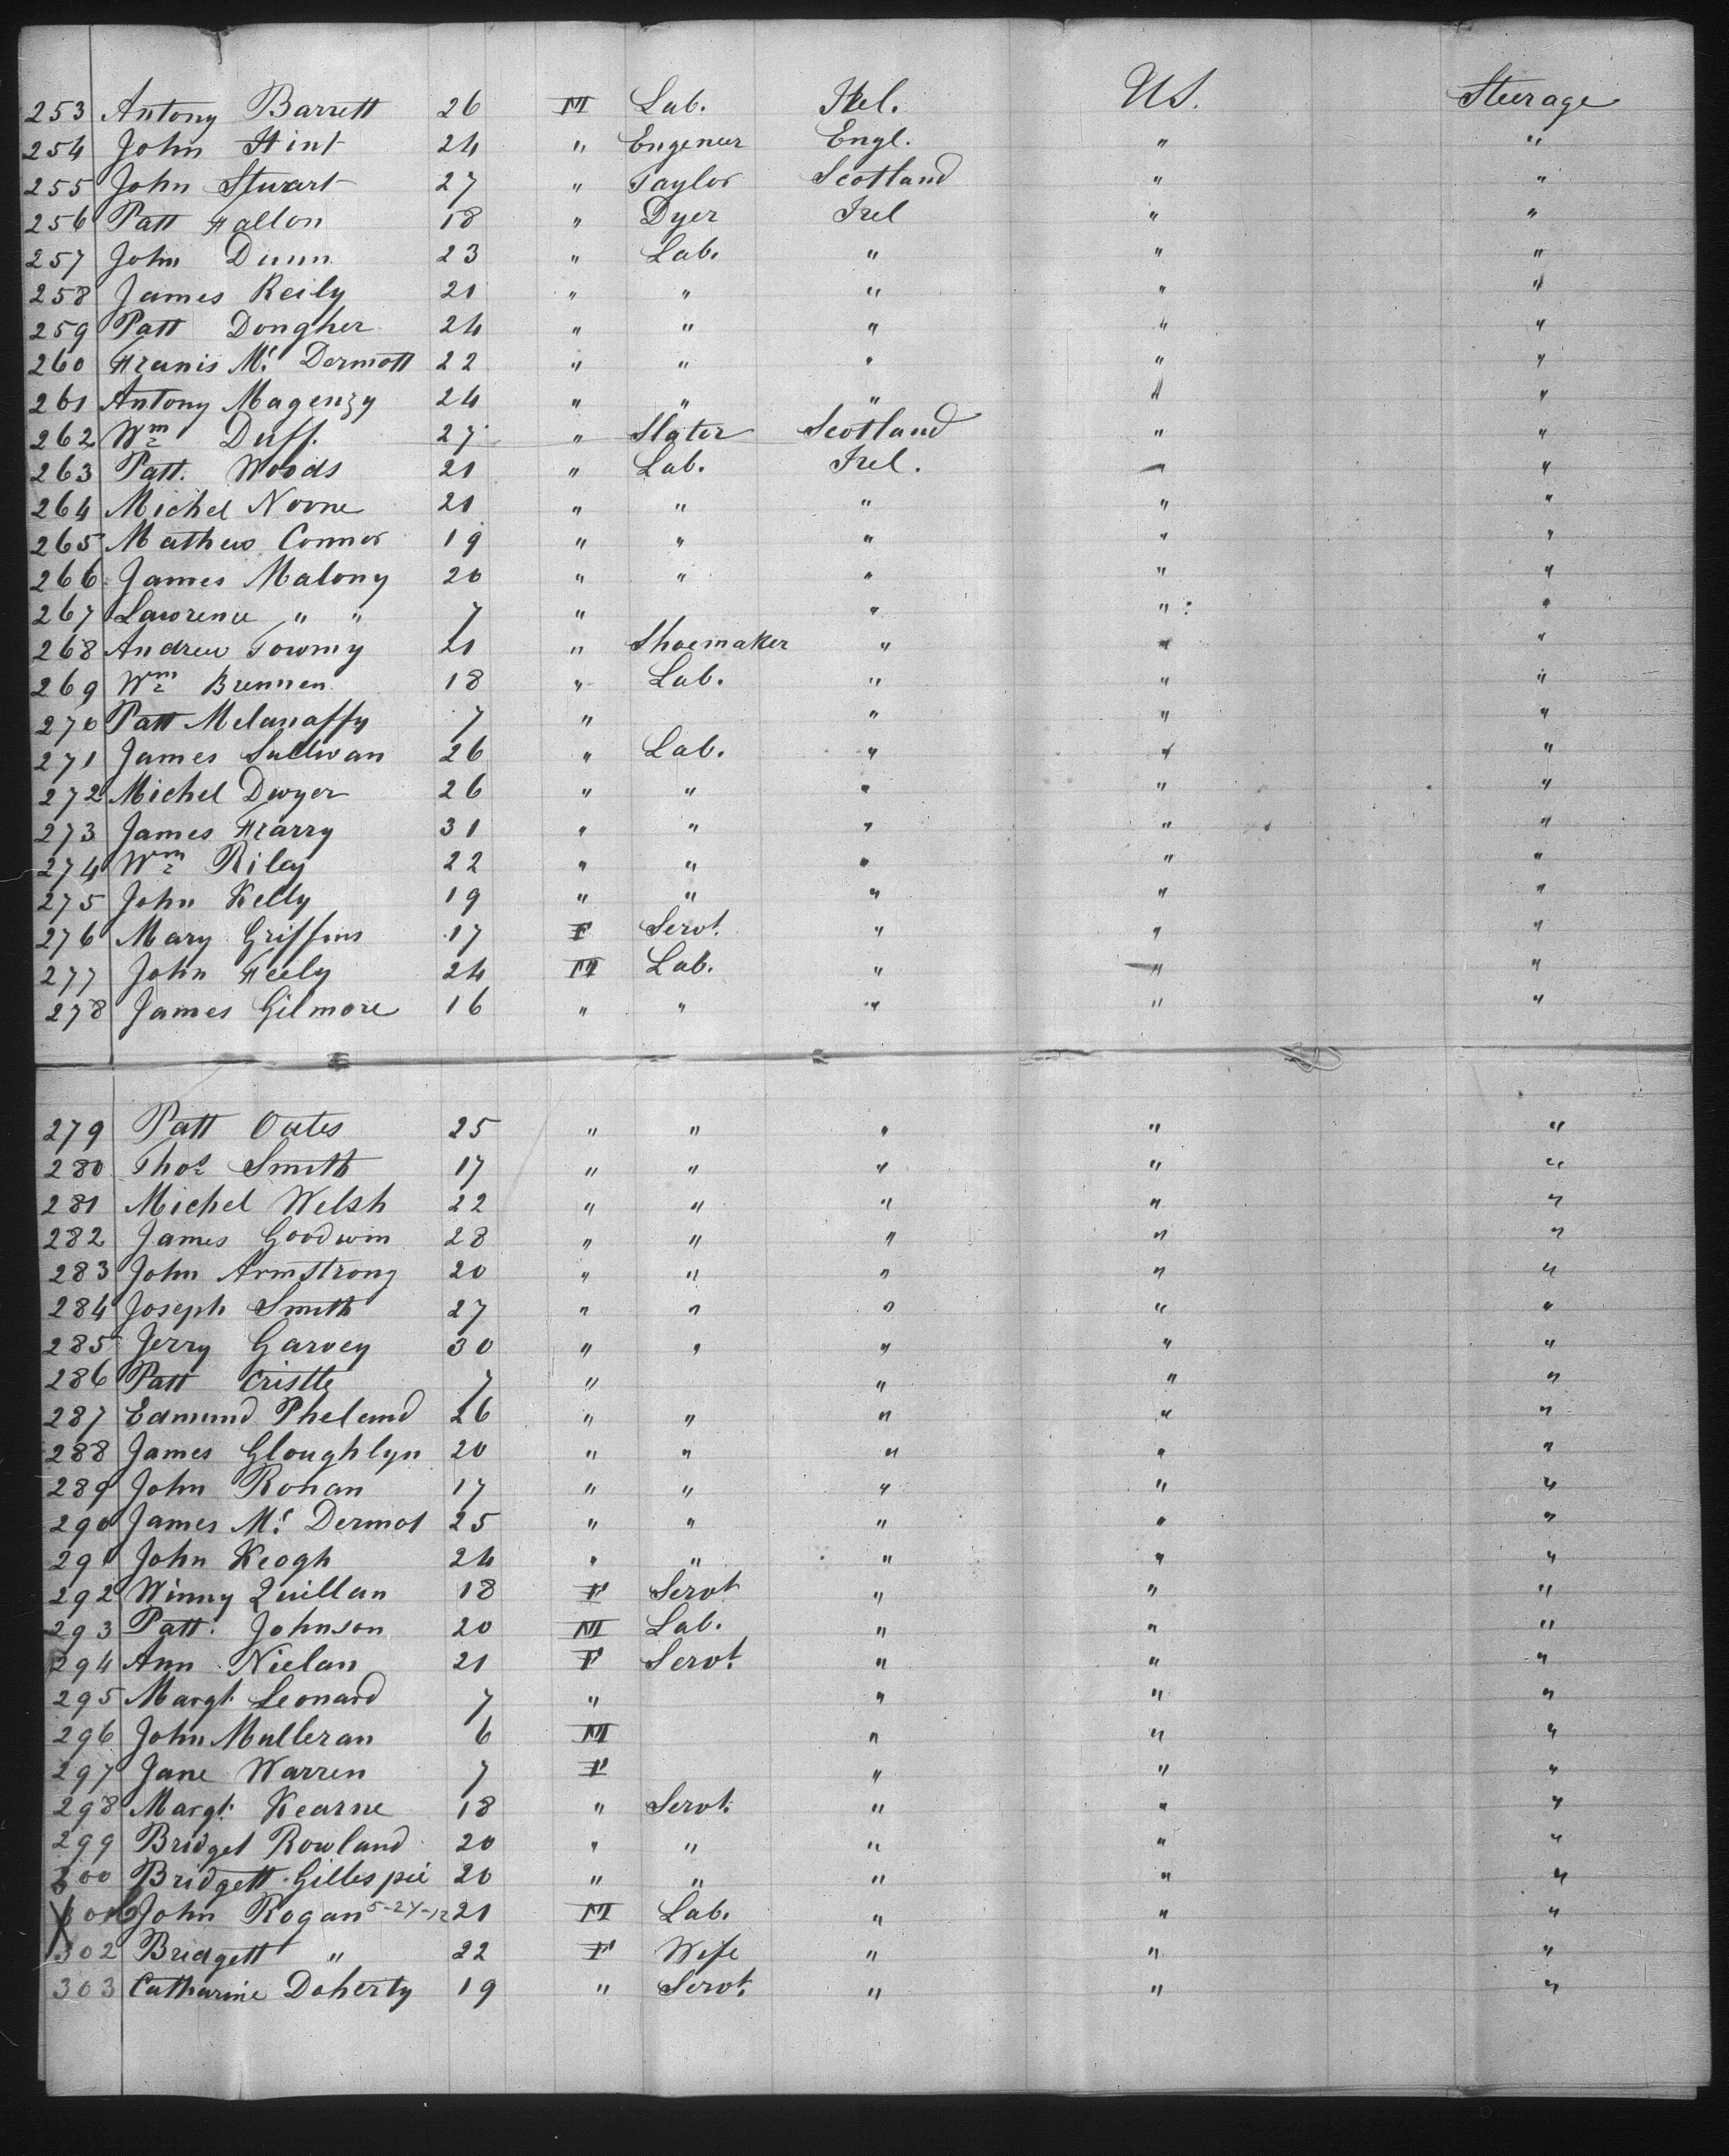 253 Antony Barrett 26 M Lab. Irel. U.S. Steerage
254 John Flint 24 " Engeneer Engl. " "
255 John Stuart 27 " Taylor Scotland " "
256 Patt Fallon 18 " Dyer Irel " "
257 John Dunn 23 " Lab. " " "
258 James Reily 21 " " " " "
259 Patt Dongher 24 " " " " "
260 Franis Mc Dermott 22 " " " " "
261 Antony Magenzy 24 " " " " "
262 Wm Duff. 27 " Slater Scotland " "
263 Patt. Woods 21 " Lab. Irel. " "
264 Michel Noone 21 " " " " "
265 Mathew Connor 19 " " " " "
266 James Malony 20 " " " " "
267 Lawrence " " 7 " " " "
268 Andrew Towmy 21 " Shoemaker " " "
269 Wm Brennen 18 " Lab. " " "
270 Patt Melanaffy 7 " " " "
271 James Sullivan 26 " Lab. " " "
272 Michel Dwyer 26 " " " " "
273 James Frarry 31 " " " " "
274 Wm Riley 22 " " " " "
275 John Kelly 19 " " " " "
276 Mary Griffins 17 F Servt. " " "
277 John Feely 24 M Lab. " " "
278 James Gilmore 16 " " " " "
279 Patt Oates 25 " " " " "
280 Thos Smith 17 " " " " "
281 Michel Welsh 22 " " " " "
282 James Goodwin 28 " " " " "
283 John Armstrong 20 " " " " "
284 Joseph Smith 27 " " " " "
285 Jerry Garvey 30 " " " " "
286 Patt Cristle 7 " " " "
287 Edmund Pheland 26 " " " " "
288 James Gloughlyn 20 " " " " "
289 John Ronan 17 " " " " "
290 James Mc Dermot 25 " " " " "
291 John Keogh 24 " " " " "
292 Winny Quillan 18 F Servt " " "
293 Patt. Johnson 20 M Lab. " " "
294 Ann Nielan 21 F Servt. " " "
295 Margt. Leonard 7 " " " "
296 John Mulleran 6 M " " "
297 Jane Warren 7 F " " "
298 Margt. Kearne 18 " Servt. " " "
299 Bridget Rowland 20 " " " " "
300 Bridgett Gillespie 20 " " " " "
301 John Rogan 5-24-12 21 M Lab. " " "
302 Bridgett " 22 F Wife " " "
303 Catharine Doherty 19 " Servt. " " "